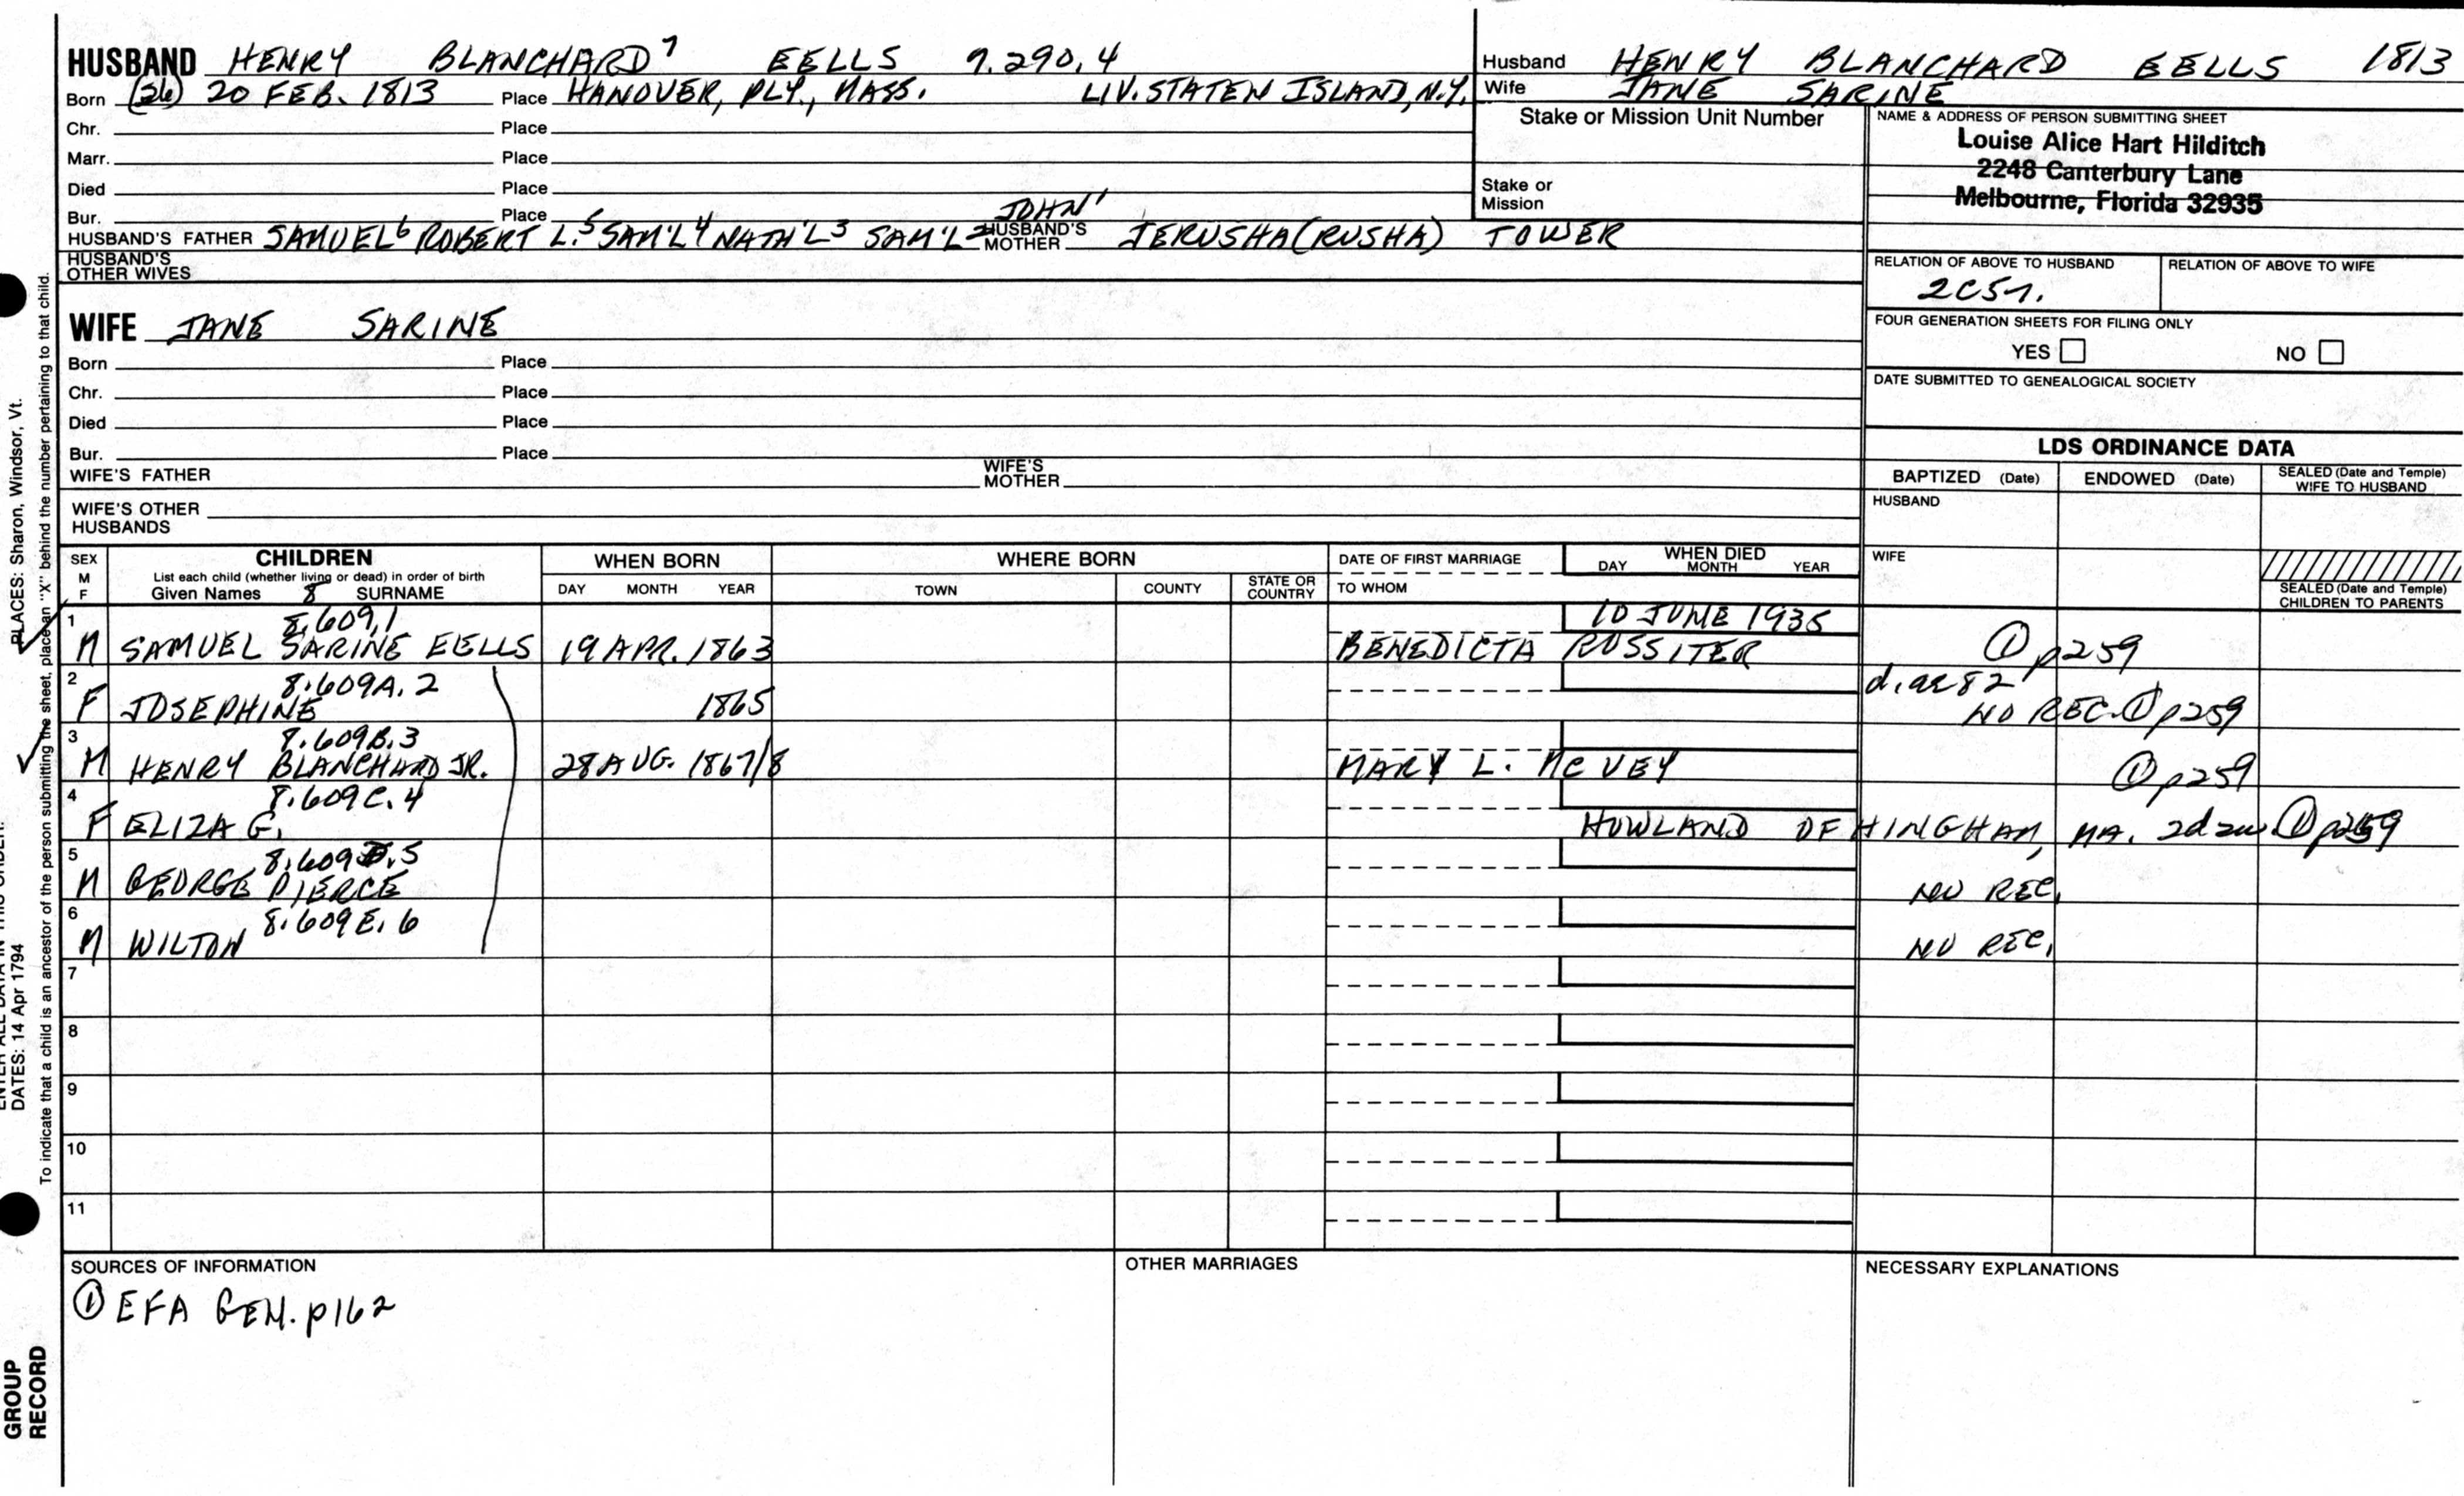 HUSBAND HENRY BLANCHARD⁷ EELLS 7.290,4
Born (26) 20 FEB. 1813 Place HANOVER, PLY., MASS. LIV. STATEN ISLAND, N.Y.
Chr. Place
Marr. Place
Died Place
Bur. Place JOHN¹
HUSBAND'S FATHER SAMUEL⁶ ROBERT L.⁵ SAM'L⁴ NATH'L³ SAM'L² HUSBAND'S MOTHER JERUSHA (RUSHA) TOWER
HUSBAND'S OTHER WIVES
WIFE JANE SARINE
Born Place
Chr. Place
Died Place
Bur. Place
WIFE'S FATHER WIFE'S MOTHER
WIFE'S OTHER HUSBANDS
Husband HENRY BLANCHARD EELLS 1813
Wife JANE SARINE
Stake or Mission Unit Number
Stake or Mission
NAME & ADDRESS OF PERSON SUBMITTING SHEET
Louise Alice Hart Hilditch
2248 Canterbury Lane
Melbourne, Florida 32935
RELATION OF ABOVE TO HUSBAND RELATION OF ABOVE TO WIFE
2C5r.
FOUR GENERATION SHEETS FOR FILING ONLY
YES NO
DATE SUBMITTED TO GENEALOGICAL SOCIETY
LDS ORDINANCE DATA
BAPTIZED (Date) ENDOWED (Date) SEALED (Date and Temple) WIFE TO HUSBAND
HUSBAND
WIFE
SEALED (Date and Temple) CHILDREN TO PARENTS
SEX M F CHILDREN WHEN BORN WHERE BORN DATE OF FIRST MARRIAGE WHEN DIED
List each child (whether living or dead) in order of birth
Given Names 8 SURNAME DAY MONTH YEAR TOWN COUNTY STATE OR COUNTRY TO WHOM DAY MONTH YEAR
1 8.609,1 10 JUNE 1935
M SAMUEL SARINE EELLS 19 APR. 1863 BENEDICTA ROSSITER ① p259
2 8.609A.2 d. ae 82
F JOSEPHINE 1865 NO REC. ① p259
3 8.609B.3
M HENRY BLANCHARD JR. 28 AUG. 1867/8 MARY L. MCVEY ① p259
4 8.609C.4
F ELIZA G. HOWLAND OF HINGHAM, MA. 2d ① p259
5 8.609D.5
M GEORGE PIERCE NO REC.
6 8.609E.6
M WILTON NO REC.
7
8
9
10
11
SOURCES OF INFORMATION OTHER MARRIAGES NECESSARY EXPLANATIONS
① EFA GEN. p162
PLACES: Sharon, Windsor, Vt.
DATES: 14 Apr 1794
To indicate that a child is an ancestor of the person submitting the sheet, place an "X" behind the number pertaining to that child.
GROUP
RECORD